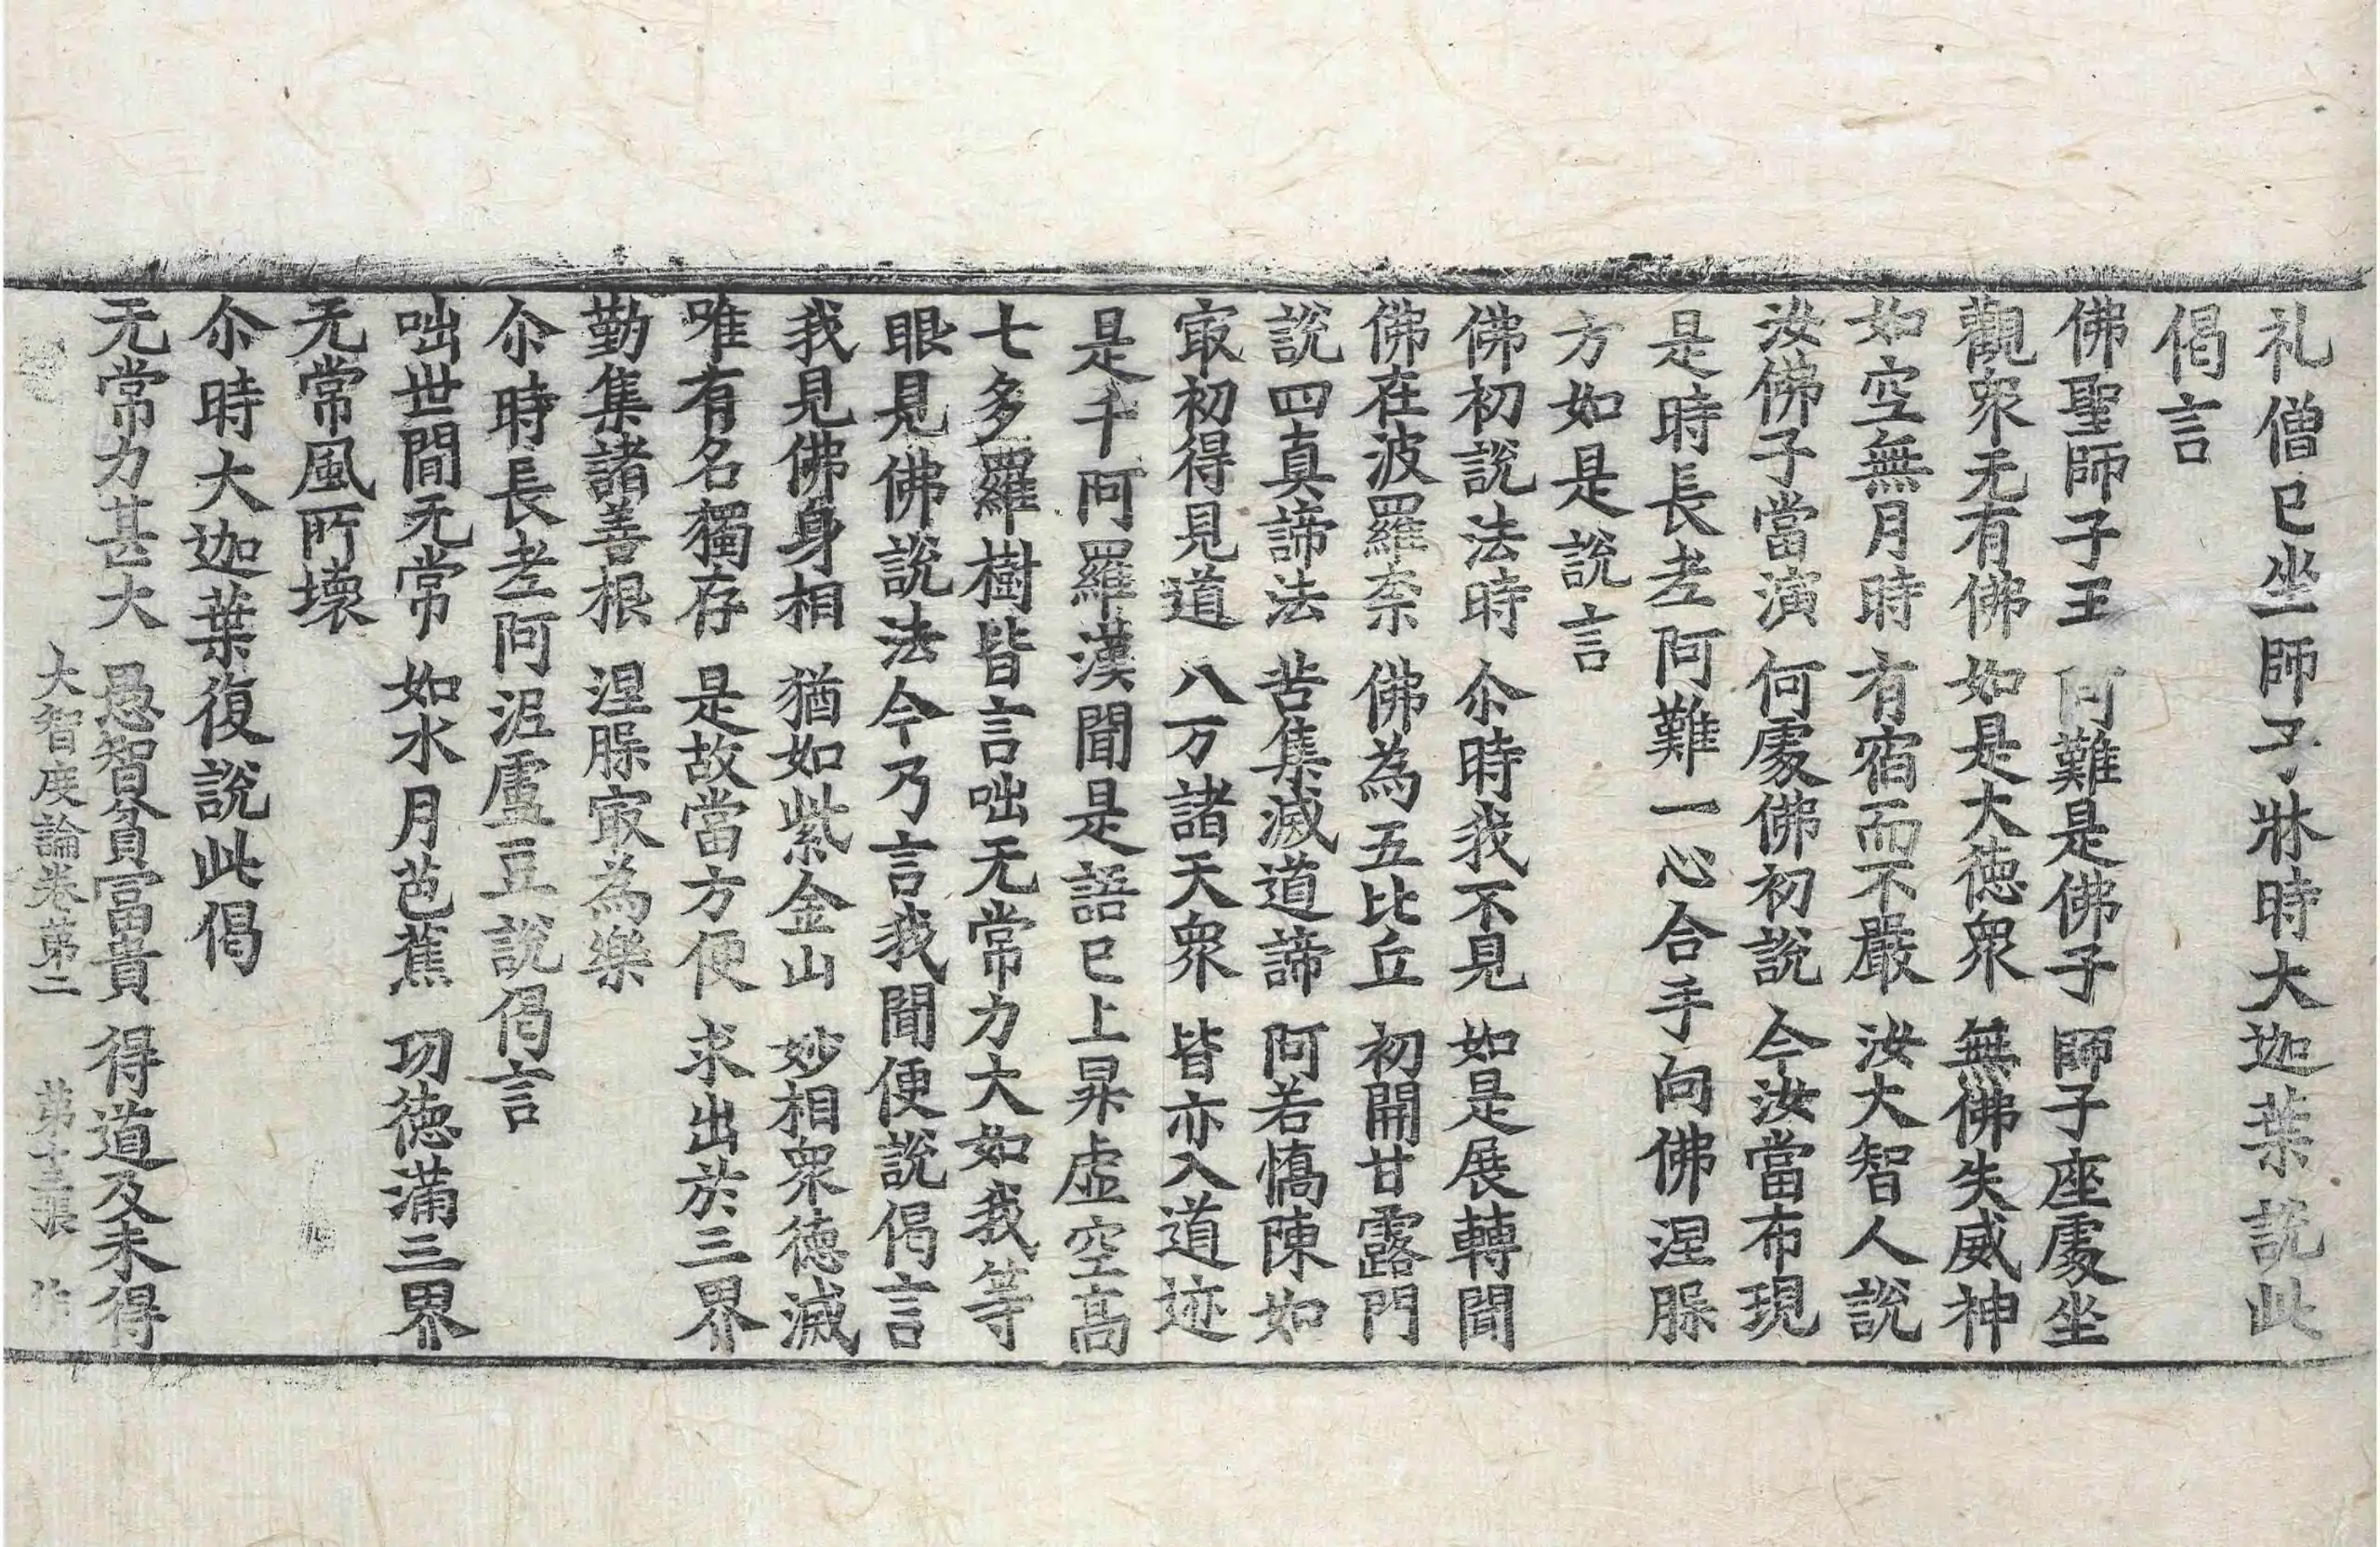 礼僧已坐師子牀時大迦葉說此
偈言
佛聖師子王 阿難是佛子 師子座處坐
觀衆无有佛 如是大德衆 無佛失威神
如空無月時 有宿而不嚴 汝大智人說
汝佛子當演 何處佛初說 今汝當布現
是時長老阿難一心合手向佛涅槃
方如是說言
佛初說法時 尒時我不見 如是展轉聞
佛在波羅奈 佛為五比丘 初開甘露門
說四真諦法 苦集滅道諦 阿若憍陳如
㝡初得見道 八万諸天衆 皆亦入道迹
是千阿羅漢聞是語已上昇虛空高
七多羅樹皆言咄无常力大如我等
眼見佛說法今乃言我聞便說偈言
我見佛身相 猶如紫金山 妙相衆德滅
唯有名獨存 是故當方便 求出於三界
勤集諸善根 涅槃㝡為樂
尒時長老阿泥盧豆說偈言
咄世間无常 如水月芭蕉 功德滿三界
无常風所壞
尒時大迦葉復說此偈
无常力甚大 愚智貧富貴 得道及未得
大智度論卷第二 第十三張